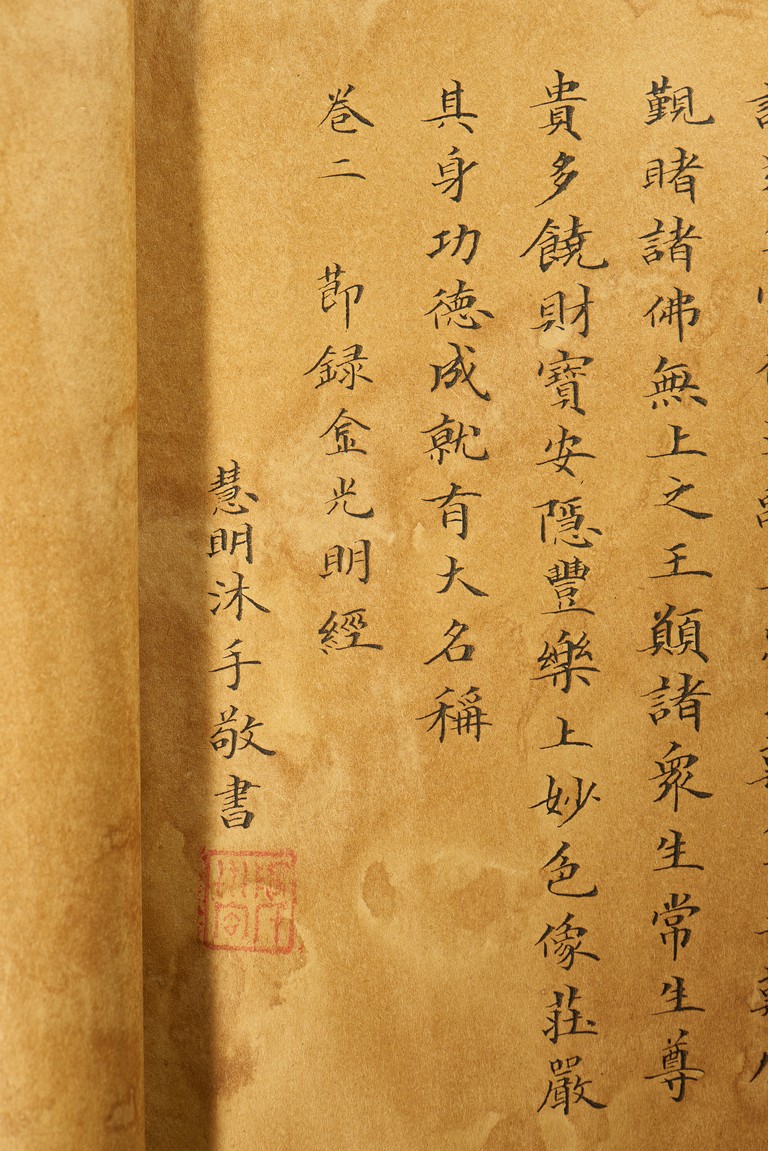 覲睹諸佛無上之王願諸衆生常生尊
貴多饒財寶安隱豐樂上妙色像莊嚴
其身功德成就有大名稱
卷二 莭録金光明經
慧明沐手敬書